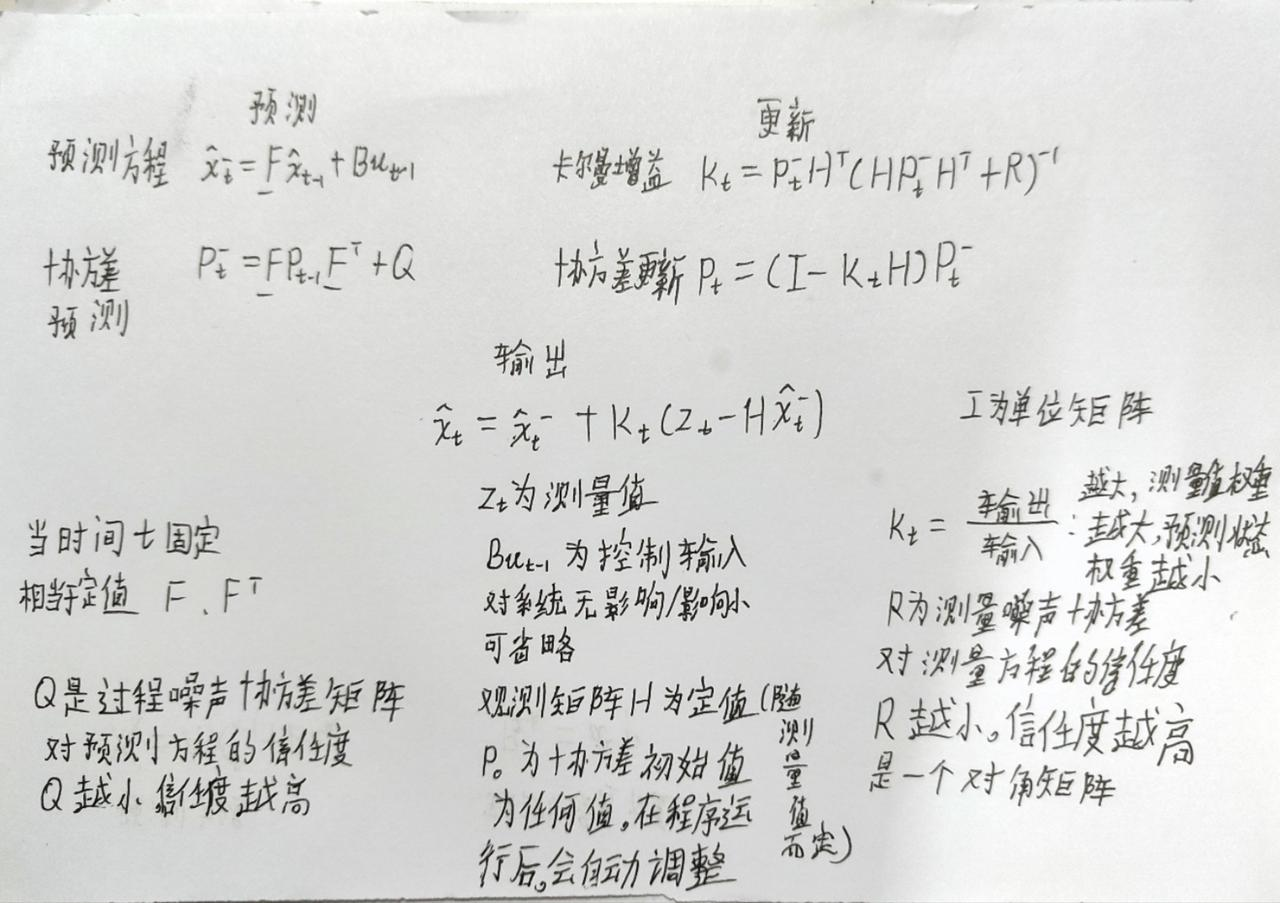 预测
预测方程 x̂ₜ⁻ = Fx̂ₜ₋₁ + Buₜ₋₁
协方差
预测 Pₜ⁻ = FPₜ₋₁Fᵀ + Q
更新
卡尔曼增益 Kₜ = Pₜ⁻Hᵀ(HPₜ⁻Hᵀ + R)⁻¹
协方差更新 Pₜ = (I - KₜH)Pₜ⁻
输出
x̂ₜ = x̂ₜ⁻ + Kₜ(Zₜ - Hx̂ₜ⁻)
当时间t固定
相当于定值 F、Fᵀ
Q是过程噪声协方差矩阵
对预测方程的信任度
Q越小信任度越高
Zₜ为测量值
Buₜ₋₁为控制输入
对系统无影响/影响小
可省略
观测矩阵H为定值(随测量值而定)
P₀为协方差初始值
为任何值。在程序运
行后。会自动调整
I为单位矩阵
Kₜ = 输出/输入 : 越大,测量值权重
越大,预测状态
权重越小
R为测量噪声协方差
对测量方程的信任度
R越小。信任度越高
是一个对角矩阵